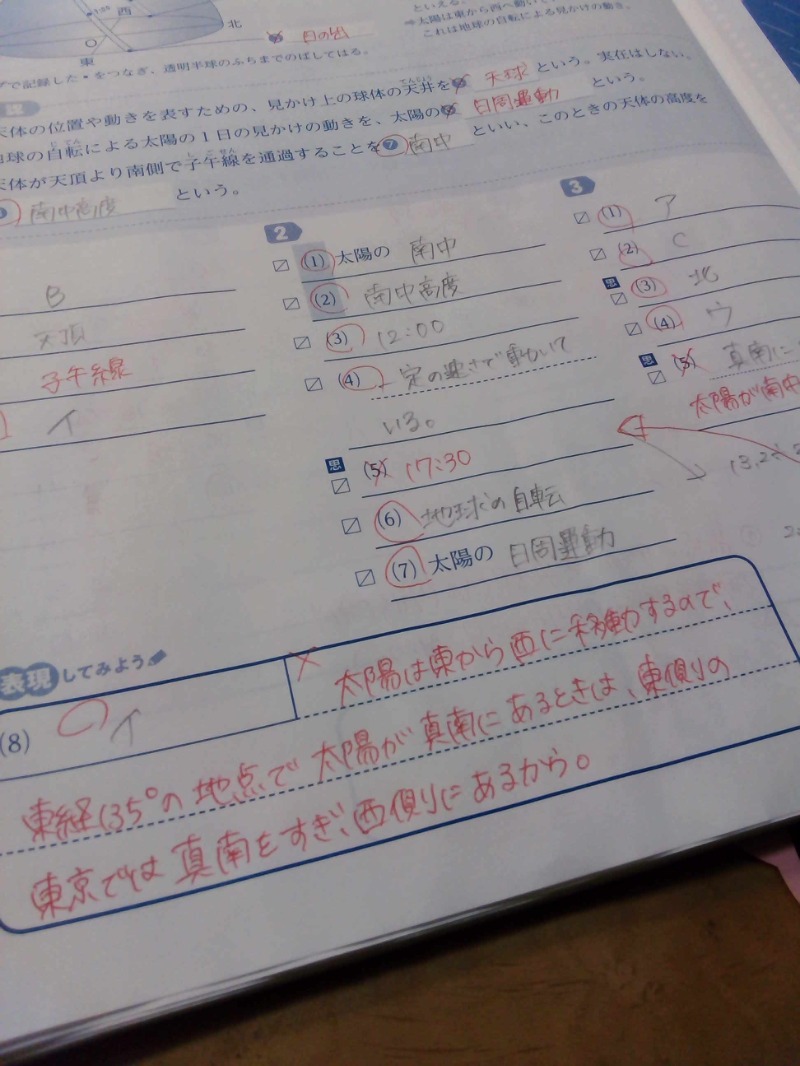 西
北
東
日の出
といえる。
⇒太陽は東から西へ動いて
これは地球の自転による見かけの動き。
で記録した・をつなぎ、透明半球のふちまでのばしてはる。
天体の位置や動きを表すための、見かけ上の球体の天井を 天球 という。実在はしない。
地球の自転による太陽の1日の見かけの動きを、太陽の 日周運動 という。
天体が天頂より南側で子午線を通過することを 7 南中 といい、このときの天体の高度を
南中高度 という。
B
天頂
子午線
イ
2
(1) 太陽の 南中
(2) 南中高度
(3) 12:00
(4) 一定の速さで動いて
いる。
思
(5) 17:30
(6) 地球の自転
(7) 太陽の 日周運動
3
(1) ア
(2) C
思
(3) 北
(4) ウ
思
(5) 真南に
太陽が南中
表現してみよう
(8) イ 太陽は東から西に移動するので、
東経135°の地点で太陽が真南にあるときは、東側の
東京では真南をすぎ、西側にあるから。